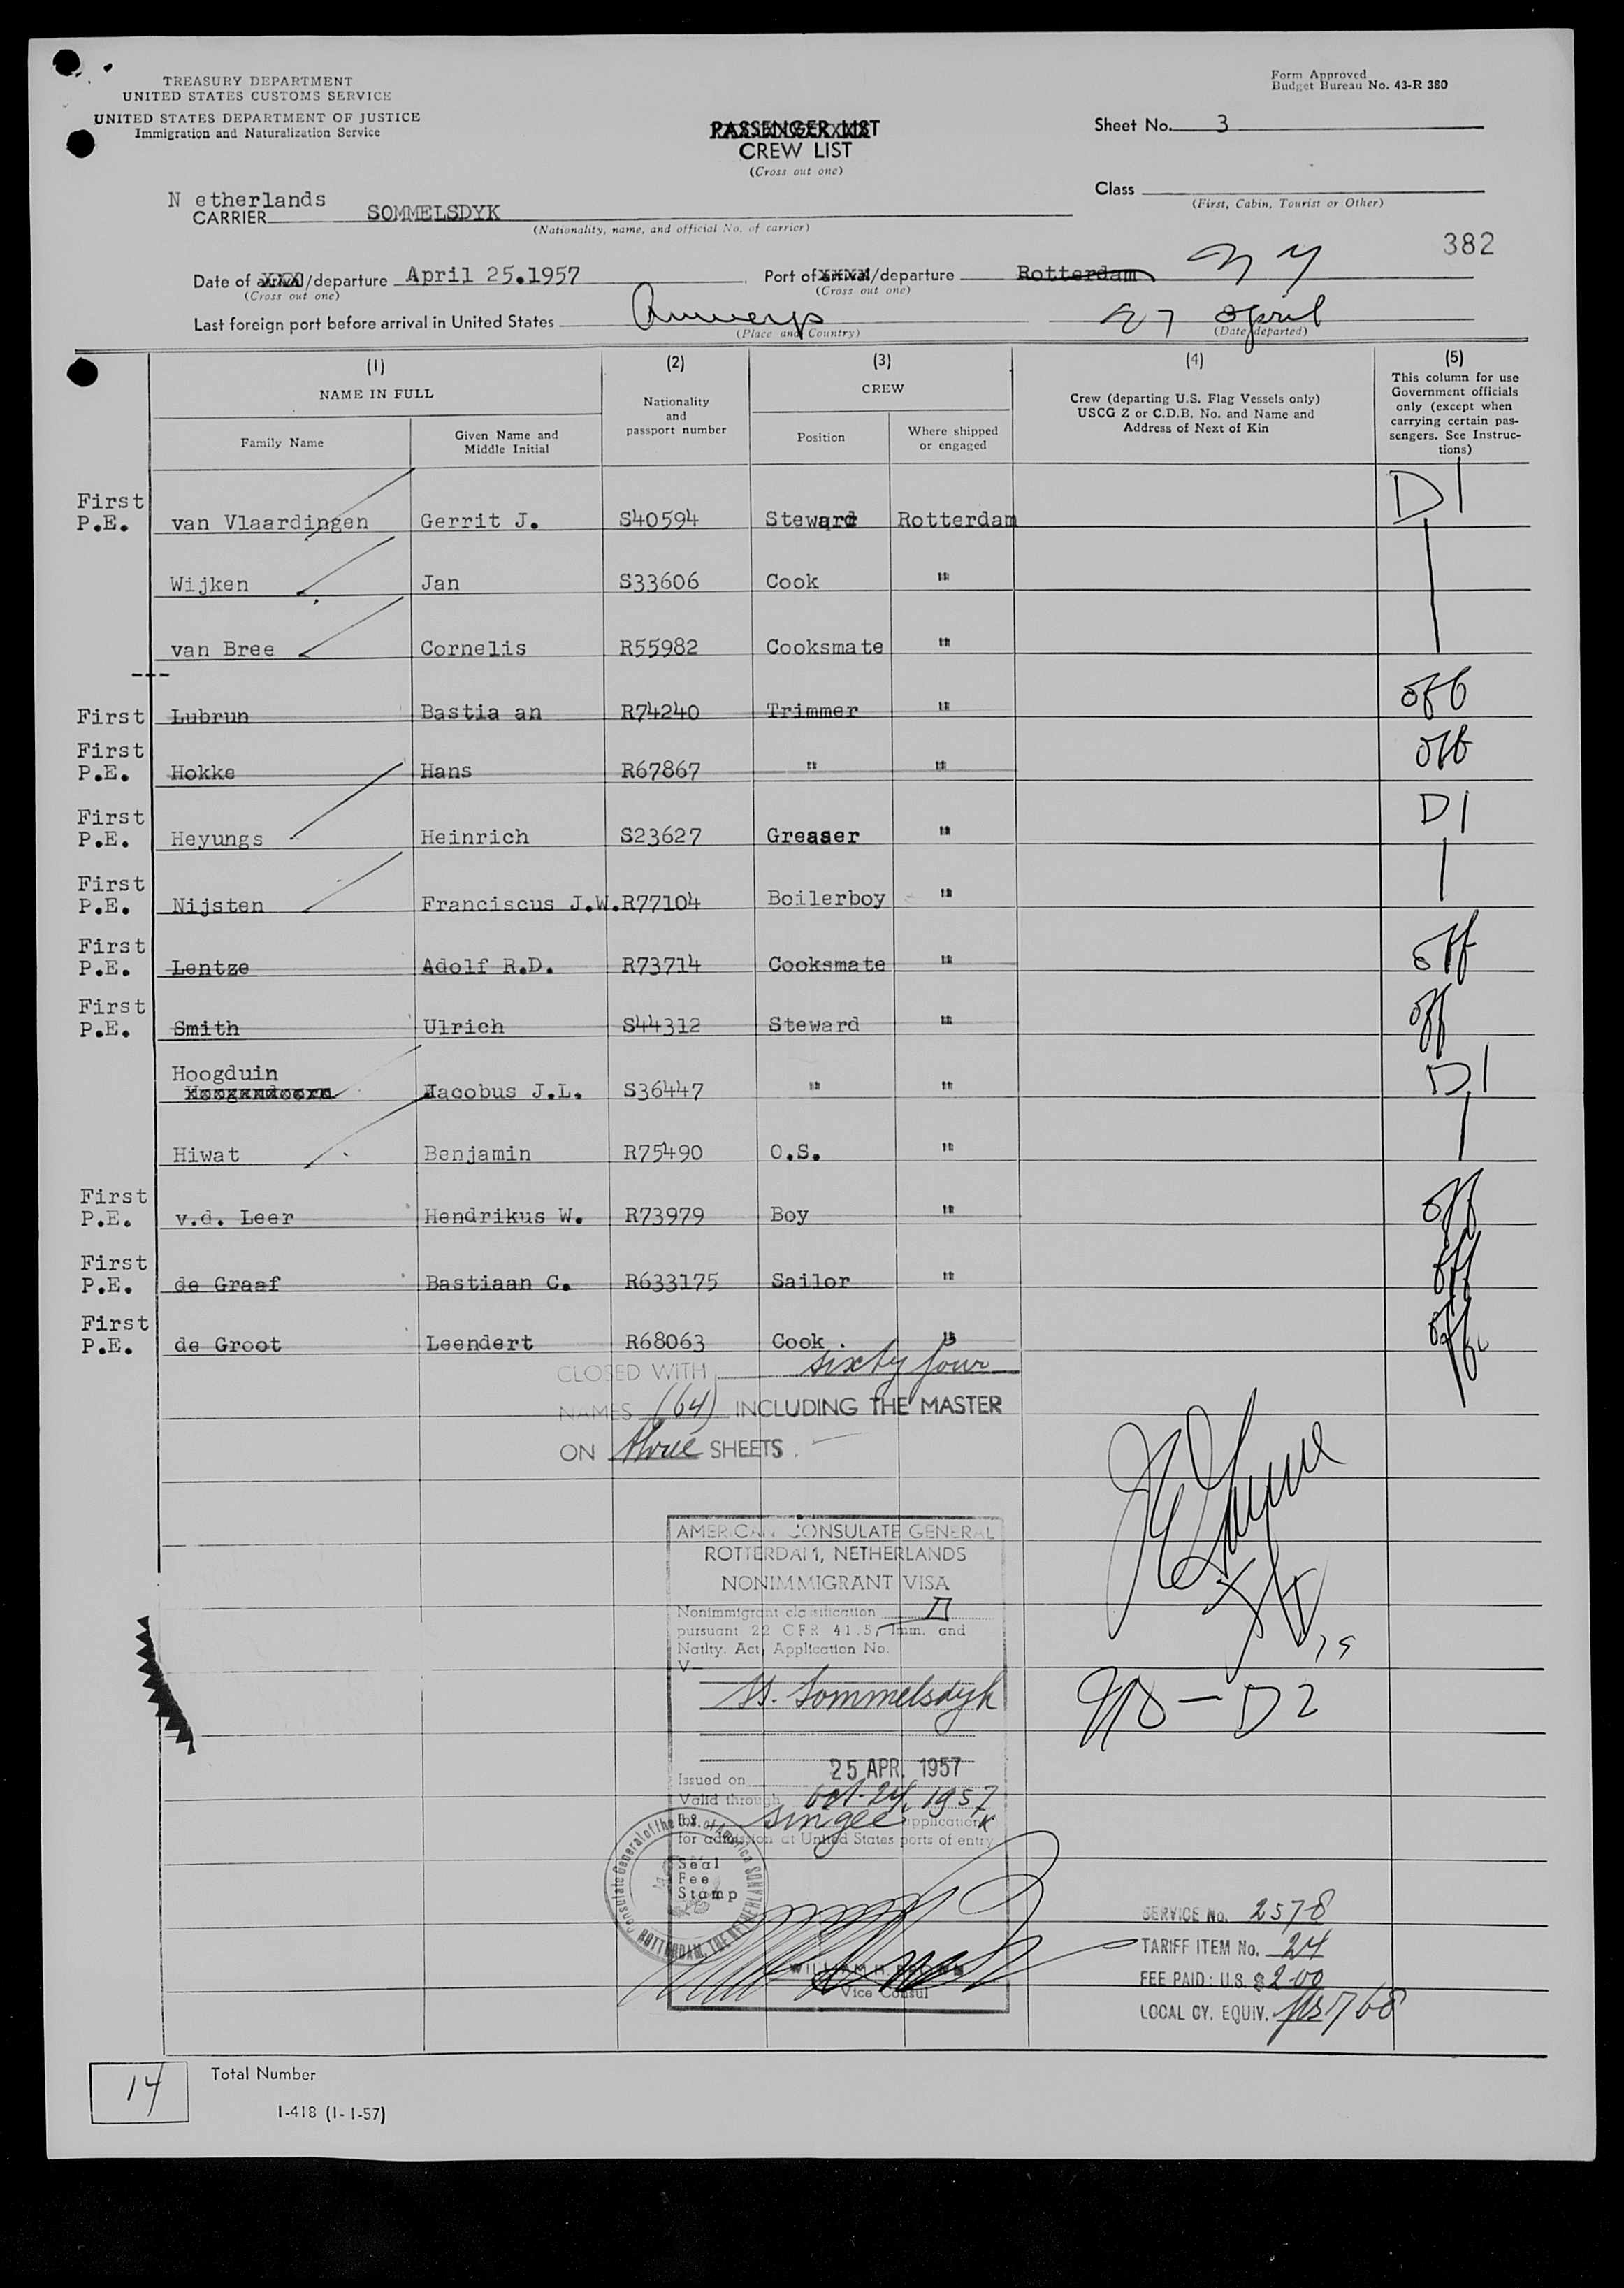 TREASURY DEPARTMENT
UNITED STATES CUSTOMS SERVICE
UNITED STATES DEPARTMENT OF JUSTICE
Immigration and Naturalization Service
Form Approved
Budget Bureau No. 43-R 380
PASSENGER LIST
CREW LIST
(Cross out one)
Sheet No. 3
Class
(First, Cabin, Tourist or Other)
N etherlands
CARRIER SOMMELSDYK
(Nationality, name, and official No. of carrier)
382
Date of arrival/departure April 25.1957 Port of arrival/departure Rotterdam N Y
(Cross out one) (Cross out one)
Last foreign port before arrival in United States Antwerp 27 April
(Place and Country) (Date departed)
(1) (2) (3) (4) (5)
NAME IN FULL
Family Name
Given Name and Middle Initial
Nationality and passport number
CREW
Position
Where shipped or engaged
Crew (departing U.S. Flag Vessels only)
USCG Z or C.D.B. No. and Name and
Address of Next of Kin
This column for use
Government officials
only (except when
carrying certain pas-
sengers. See Instruc-
tions)
First
P.E. van Vlaardingen Gerrit J. S40594 Steward Rotterdam D1
Wijken Jan S33606 Cook "
van Bree Cornelis R55982 Cooksmate "
---
First Lubrun Bastia an R74240 Trimmer " off
First
P.E. Hokke Hans R67867 " " off
First
P.E. Heyungs Heinrich S23627 Greaser " D1
First
P.E. Nijsten Franciscus J.W. R77104 Boilerboy "
First
P.E. Lentze Adolf R.D. R73714 Cooksmate " off
First
P.E. Smith Ulrich S44312 Steward " off
Hoogduin
Hoogendoorn Jacobus J.L. S36447 " " D1
Hiwat Benjamin R75490 O.S. "
First
P.E. v.d. Leer Hendrikus W. R73979 Boy " off
First
P.E. de Graaf Bastiaan C. R633175 Sailor " off
First
P.E. de Groot Leendert R68063 Cook . " off
CLOSED WITH sixty four
NAMES (64) INCLUDING THE MASTER
ON three SHEETS .
AMERICAN CONSULATE GENERAL
ROTTERDAM, NETHERLANDS
NONIMMIGRANT VISA
Nonimmigrant classification D
pursuant 22 CFR 41.5, Imm. and
Natlty. Act, Application No.
V—
SS. Sommelsdyk
NO — D2
25 APR. 1957
Issued on
Valid through Oct. 24, 1957
for single application
for admission at United States ports of entry
Seal
Fee
Stamp
Consulate General of the U.S. of America
ROTTERDAM, THE NETHERLANDS
WILLIAM H. BROWN
Vice Consul
SERVICE No. 2578
TARIFF ITEM No. 24
FEE PAID: U.S. $ 2.00
LOCAL CY. EQUIV. fls 7.68
14
Total Number
I-418 (1-1-57)